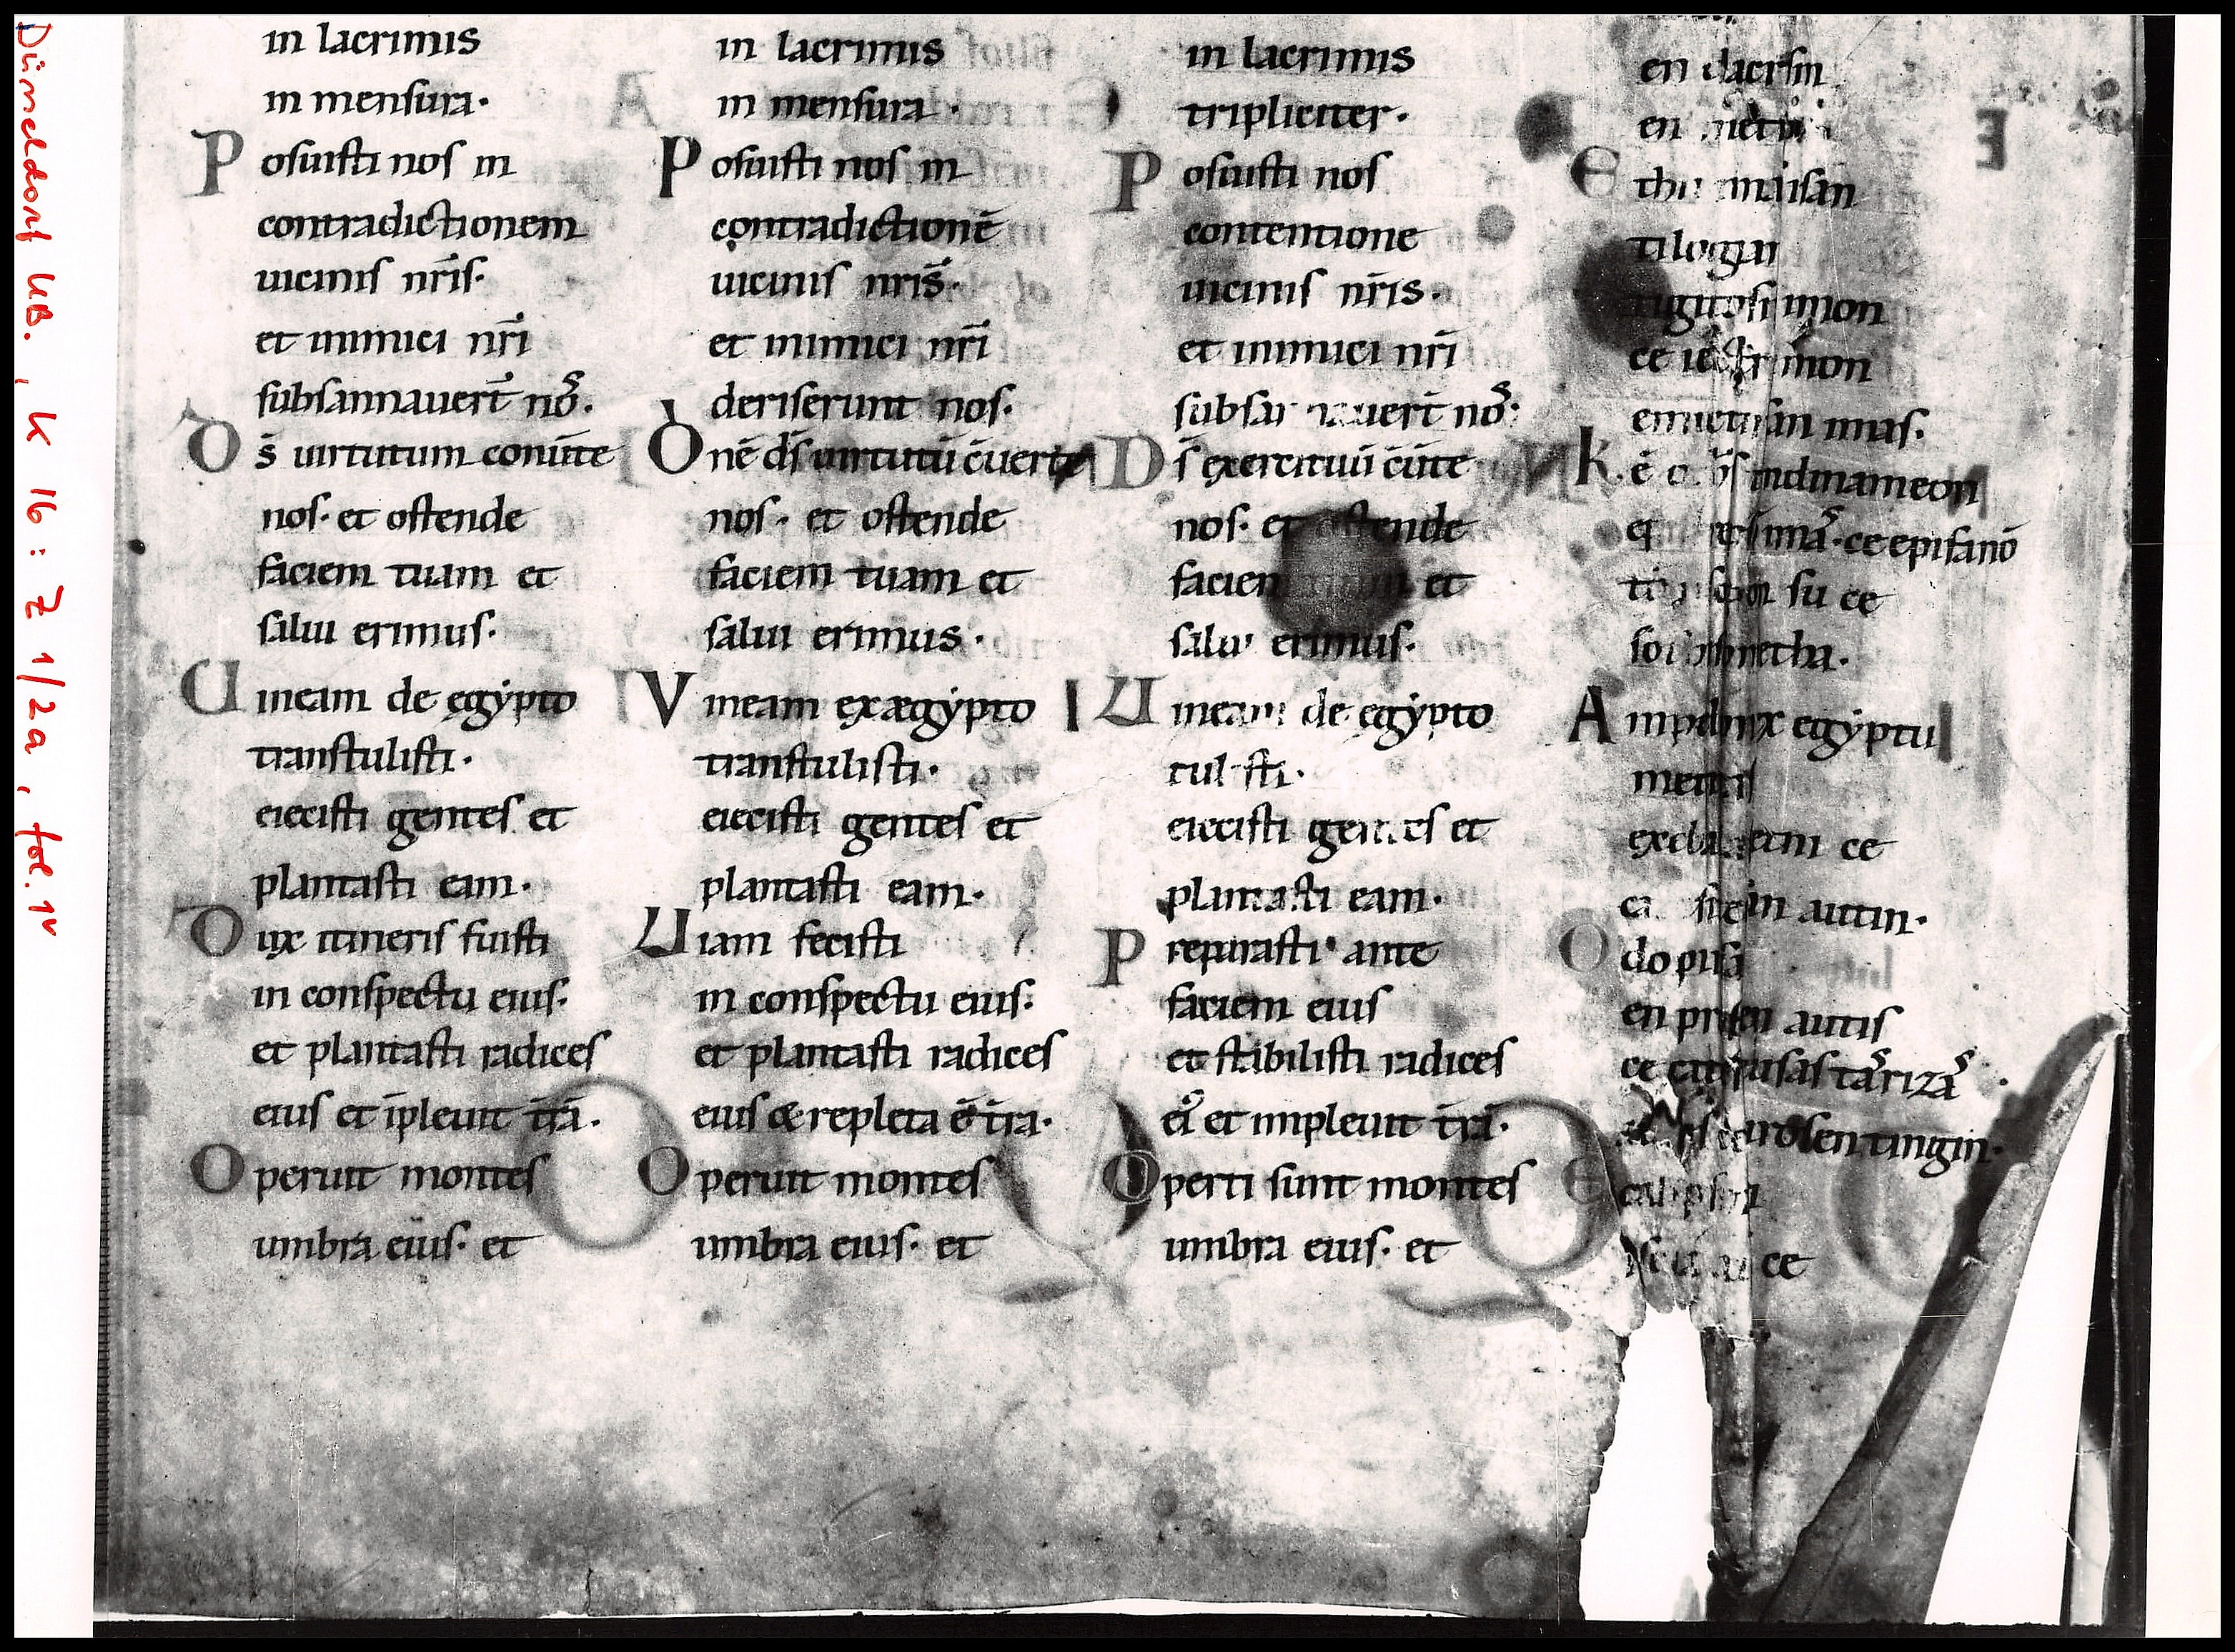 Düsseldorf UB., K 16: Z 1/2a, fol. 1v
in lacrimis
in mensura·
Posuisti nos in
contradictionem
uicinis nr̄is·
et inimici nr̄i
subsannauer̄t nos·
Ds̄ uirtutum conu̅te
nos· et ostende
faciem tuam et
salui erimus·
Uineam de ęgẏpto
transtulisti·
eiecisti gentes et
plantasti eam·
Dux itineris fuisti
in conspectu eius·
et plantasti radices
eius et īpleuit tr̄a·
Operuit montes
umbra eius· et
in lacrimis
in mensura·
Posuisti nos in
contradictionē
uicinis nr̄is·
et inimici nr̄i
deriserunt nos·
Dnē ds̄ uirtutū c̄uerte
nos· et ostende
faciem tuam et
salui erimus·
Vineam ex ægẏpto
transtulisti·
eiecisti gentes et
plantasti eam·
Uiam fecisti
in conspectu eius·
et plantasti radices
eius & repleta ē tr̄a·
Operuit montes
umbra eius· et
in lacrimis
tripliciter·
Posuisti nos
contentione
uicinis nr̄is·
et inimici nr̄i
nos·
Ds̄ exercituū c̄u̅te
nos· et ostende
faciem et
salui erimus·
Uineam de egẏpto
tulisti·
eiecisti gentes et
plantasti eam·
Preparasti ante
faciem eius
et stabilisti radices
ei᷒ et impleuit tr̄a·
Operti sunt montes
umbra eius· et
en dacrsin
en
Ethu
tilogian
mon
ce mon
imas·
K·
ce epifanō
su ce
Ampelon ex egẏptu
ce
autin·
Odopiis
en autis
ce
Ecalipsen
ce